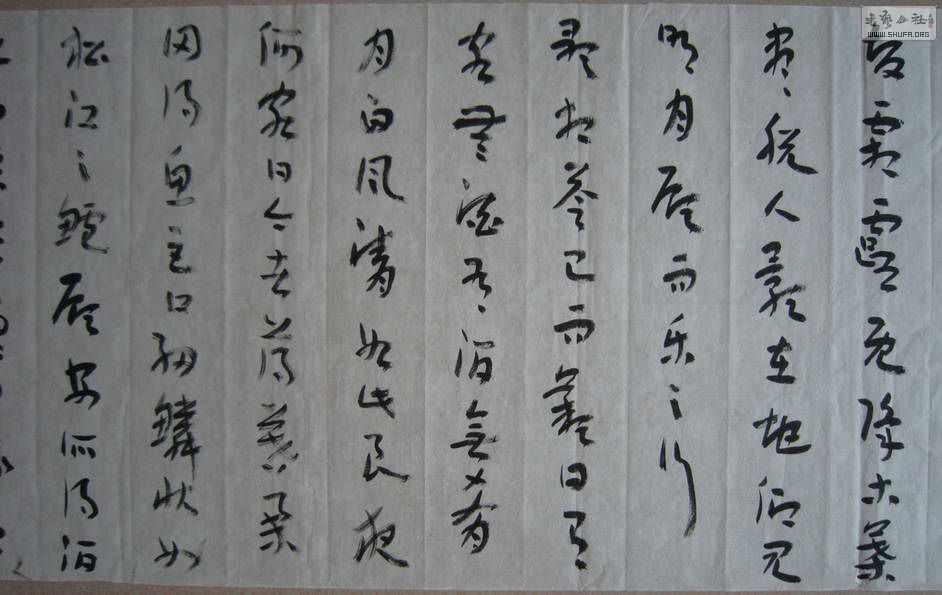 坂霜露既降木葉
尽脱人影在地仰見
明月顧而乐之行
歌相答已而歎曰有
客無酒有酒無肴
月白風清如此良夜
何客曰今者薄暮舉
网得魚巨口細鱗狀如
松江之鱸顧安所得酒
书艺公社
WWW.SHUFA.ORG